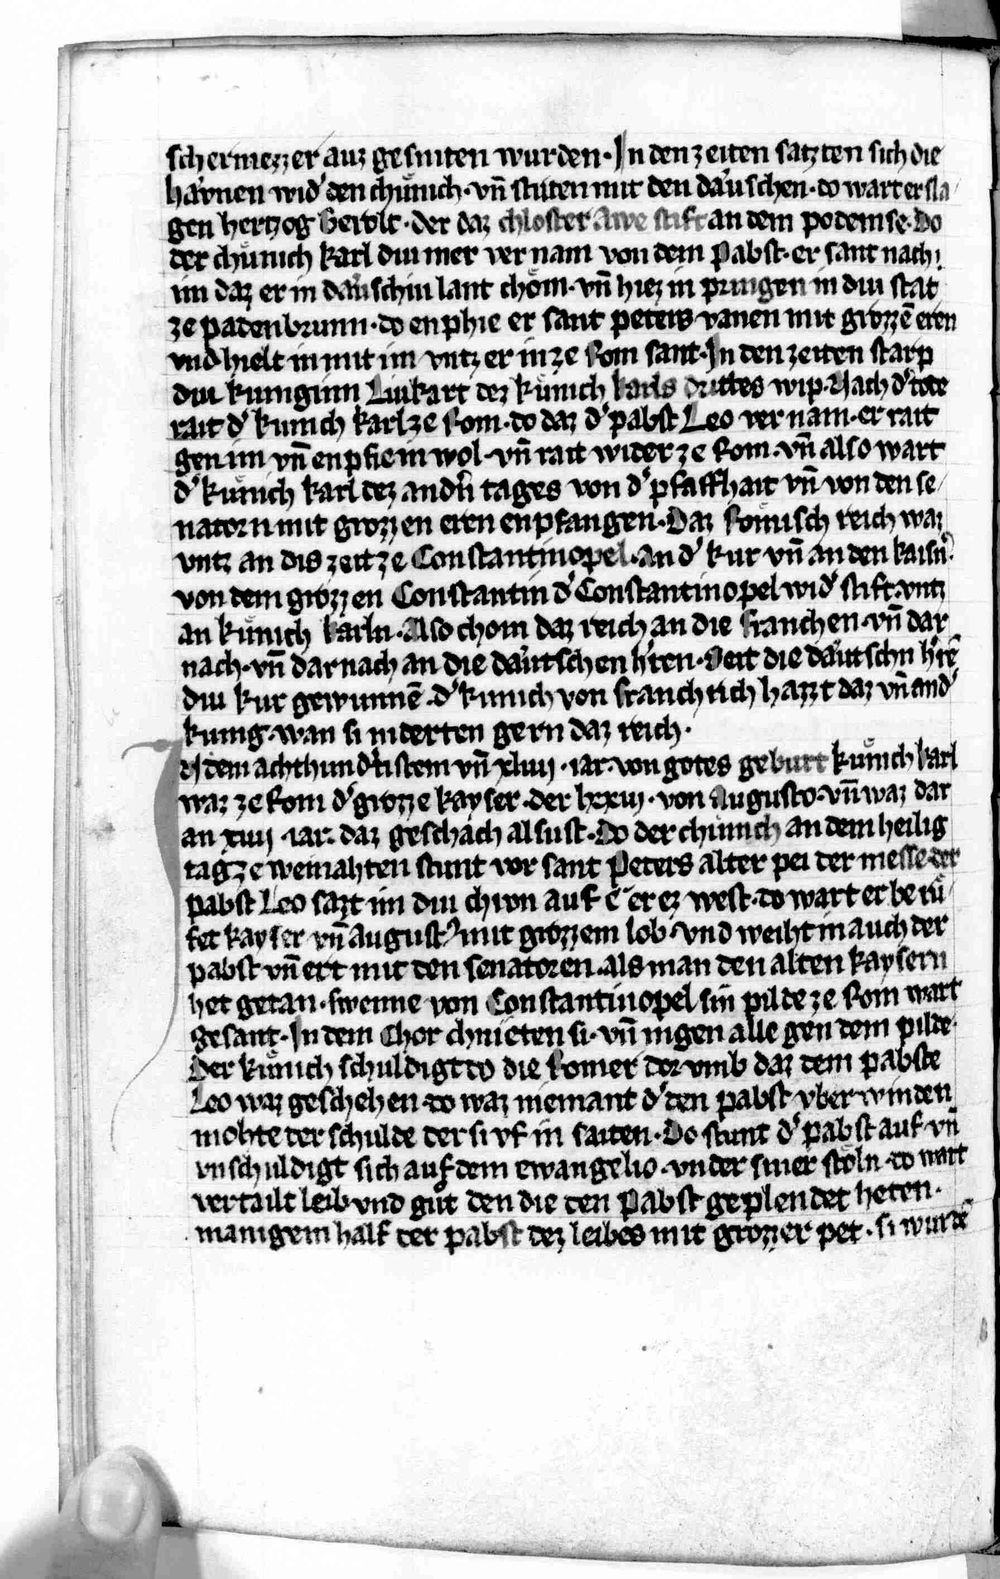 schermezzer auz gesniten wurden · In den zeiten satzten sich die
haͤvnen wid' den chuͤnich · vn̄ striten mit den daͤuschen · do wart ersla/
gen hertzog Gerolt · der daz chloster Awe stift an dem podemse · Do
der chuͤnich karl diu mer ver nam von dem Pabst · er sant nach
im daz er in daͤuschiu lant choͤm · vn̄ hiez in pringen in diu stat
ze padenbrunn · do enphie er sant peters vanen mit grozzē eren
vnd hielt in mit im vntz er in ze Rom sant · In den zeiten starp
diu kuniginn Liukart dez kuͤnich karls drittes wip · Nach d' tode
rait d' kunich karl ze Rom · do daz d' pabst Leo ver nam · er rait
gen im vn̄ enpfie in wol · vn̄ rait wider ze Rom · vn̄ also wart
d' kuͤnich karl dez andn̄ tages von d' pfaffhait vn̄ von den se/
natorn mit grozzen eren enpfangen · Daz Roͤmisch reich waz
vntz an dis zeit ze Constantinopel · An d' kur vn̄ an den kaisn̄
von dem grozzen Constantin d' Constantinopel wid' stift · vntz
an kuͤnich karln · Also chom daz reich an die franchen · vn̄ dar
nach · vn̄ darnach an die daͤutschen h'ren · Seit die daͤutschn h'rē
diu kur gewunnē · d' kunich von franchrich hazzt daz vn̄ and'
kunig · wan si inderten gern daz reich ·
In dem achthund'tistem vn̄ xliiij · iar · von gotes geburt kuͤnich karl
waz ze Rom d' grozze kayser · der lxxiij · von Augusto · vn̄ waz dar
an xiiij · iar · daz geschach alsust · Do der chuͤnich an dem heilig
tag ze weinahten stunt vor sant Peters alter pei der messe · der
pabst Leo sazt im diu chron auf e er ez west · do wart er be ruͤ/
fet kayser vn̄ august' mit grozzem lob · vnd weiht in auch der
pabst vn̄ ert mit den senatoren · als man den alten kaysern
het getan · swenne von Constantinopel sin pilde ze Rom wart
gesant · In dem Chor chnieten si · vn̄ nigen alle gen dem pilde ·
Der kuͤnich schuldigt do die Romer dor vmb daz dem pabste
Leo waz geschehen · do waz niemant d' den pabst vber winden
mohte der schulde der si vf in saiten · Do stunt d' pabst auf · vn̄
vnschuldigt sich auf dem ewangelio · vnder siner stoͤln · do wart
vertailt leib vnd guͦt den die den Pabst geplendet heten ·
manigem half der pabst dez leibes mit grozzer pet · si wurdē